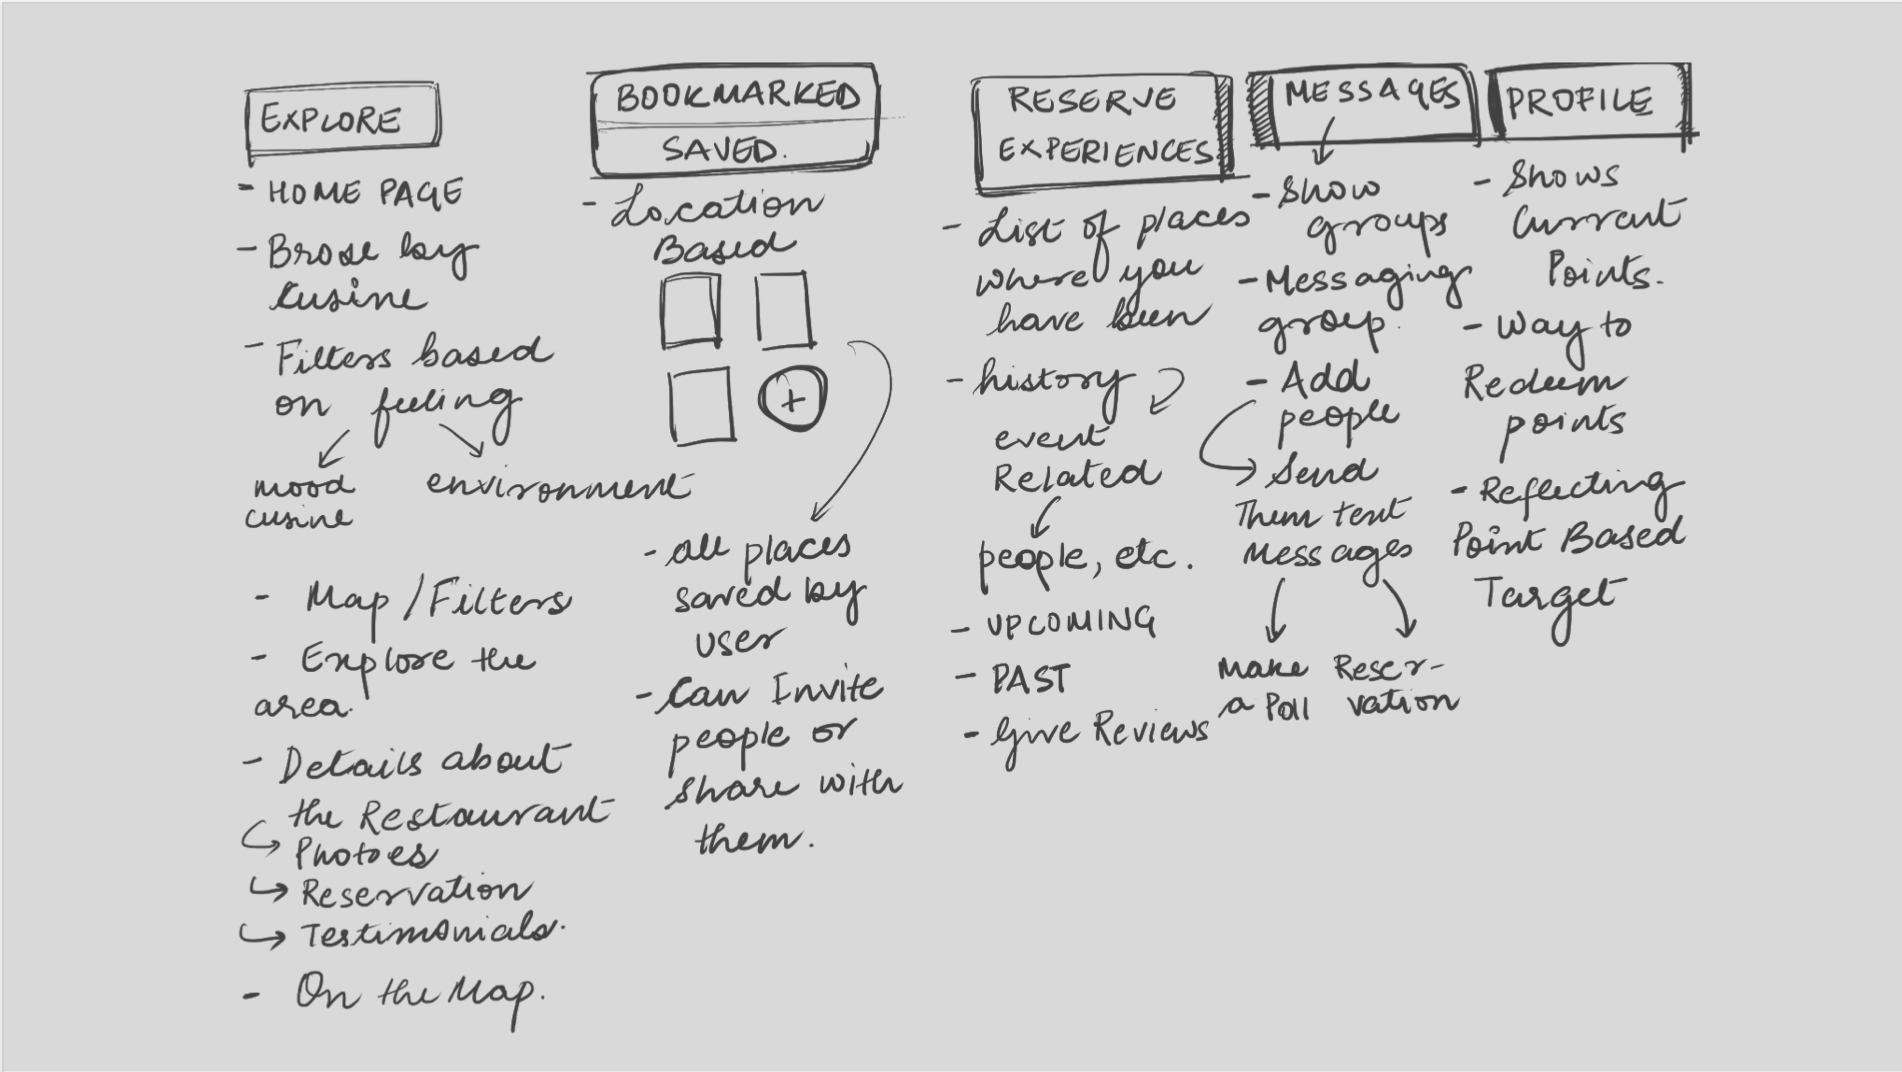 EXPLORE
- HOME PAGE
- Brose by
Cusine
- Filters based
on feeling
mood
cusine
environment
- Map / Filters
- Explore the
area.
- Details about
the Restaurant
Photoes
Reservation
Testimonials.
- On the Map.
BOOKMARKED
SAVED.
- Location
Based
+
- all places
saved by
user
- Can Invite
people or
share with
them.
RESERVE
EXPERIENCES
- List of places
where you
have been
- history
event
Related
people, etc.
- UPCOMING
- PAST
- Give Reviews
MESSAGES
- Show
groups
- Messaging
group.
- Add
people
Send
Them text
Messages
Make
a Poll
Reser-
vation
PROFILE
- Shows
Current
Points.
- Way to
Redeem
points
- Reflecting
Point Based
Target